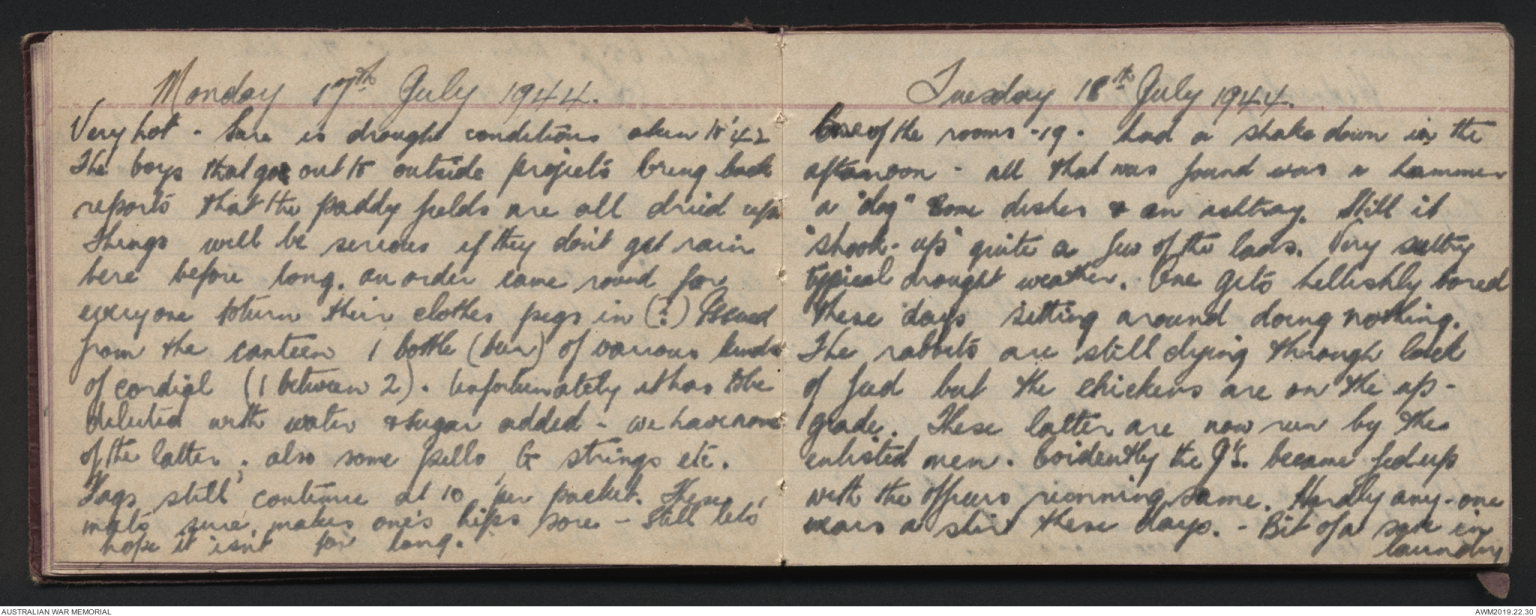 Monday 17th July 1944.
Very hot - Sure is drought conditions akin to '42
The boys that go out to outside projects bring back
reports that the paddy fields are all dried up.
Things will be serious if they don't get rain
here before long. An order came round for
everyone to turn their clothes pegs in (?)
from the canteen 1 bottle (beer) of various kinds
of cordial (1 between 2). Unfortunately it has to be
diluted with water & sugar added - we have none
of the latter. Also some strings etc.
Fags still continue at 10 per packet. These
mats sure makes one's hips sore - Still let's
hope it isn't for long.
Tuesday 18th July 1944.
One of the rooms - 19 - had a shake down in the
afternoon - all that was found was a hammer
a "dog" some dishes & an ashtray. Still it
"shook-up" quite a few of the lads. Very sultry
typical drought weather. One gets hellishly bored
these days sitting around doing nothing.
The rabbits are still dying through lack
of feed but the chickens are on the up-
grade. These latter are now run by the
enlisted men. Evidently the J's. became fed up
with the officers running same. Hardly any-one
wears a shirt these days. - Bit of a save in
laundry
AUSTRALIAN WAR MEMORIAL
AWM2019.22.30